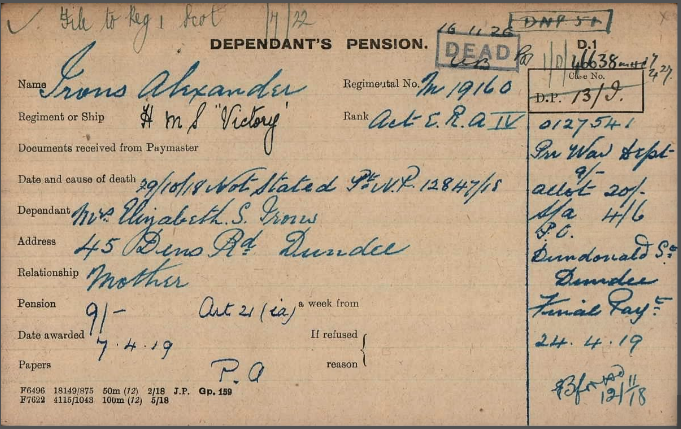 ✓ File to Reg 1 Scot 1/7/22
16.11.26
DNP 51
DEPENDANT'S PENSION.
DEAD
D.1
1/D/46638
Case No.
D.P. 13/I.
Name Irons Alexander
Regimental No. M 19160
Regiment or Ship H M S "Victory"
Rank Act E.R.A IV
0127541
Documents received from Paymaster
Pre War Dept
9/-
Date and cause of death 29/10/18 Not Stated N.P. 12847/18
allot 20/-
Dependant Mrs Elizabeth. S. Irons
S/a 4/6
P.O.
Address 45 Dens Rd. Dundee
Dundonald St
Relationship Mother
Dundee
Pension 9/- Art 21 (ia) a week from
Final Payt
Date awarded 7.4.19
If refused
reason
24.4.19
Papers P.A
12/11/18
F6496 18149/875 50m (12) 2/18 J.P. Gp. 159
F7622 4115/1043 100m (12) 5/18